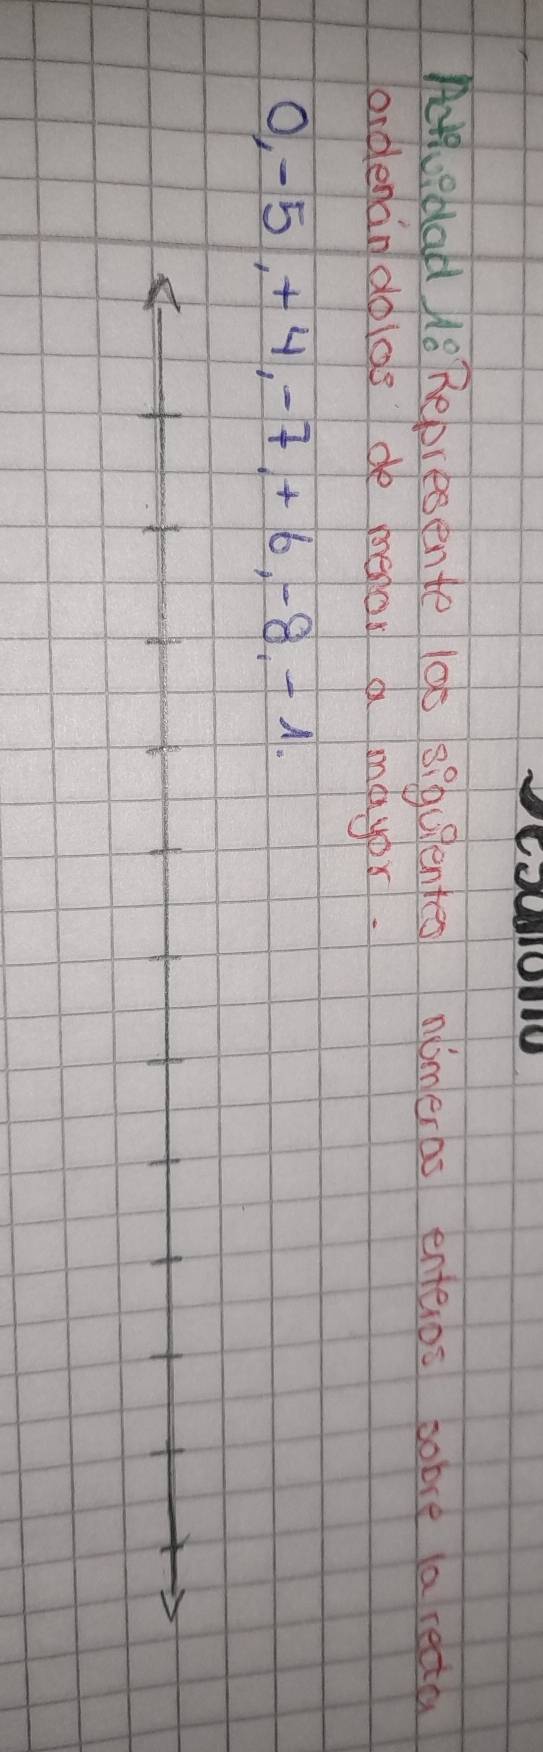 Desarrollo
Actividad 1: Represente los siguientes números enteros sobre la recta
ordenándolos de menor a mayor.
0, -5, +4, -7, +6, -8, -1.